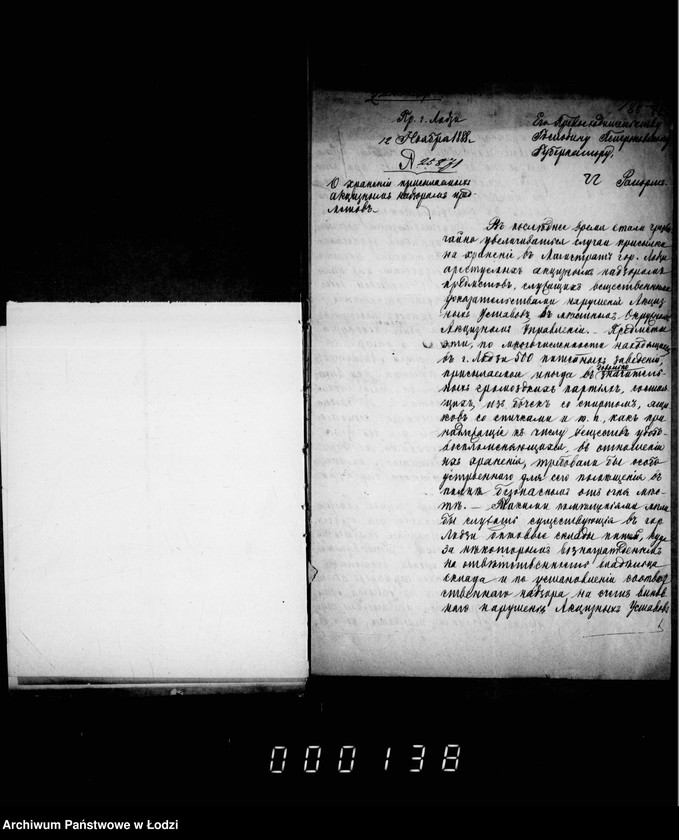 Пр. г. Лодзь
12 Ноября 1888 г.
№ 25871
О храненіи присылаемыхъ
акцизнымъ надзоромъ пред-
метовъ.
Его Превосходительству
Господину Петроковскому
Губернатору.
Рапортъ.
Въ послѣднее время стали чрезвы
чайно увеличиваться случаи присылки
на храненіе въ Магистратъ гор. Лодзи
арестуемыхъ акцизнымъ надзоромъ
предметовъ, служащихъ вещественными
доказательствами нарушенія Акциз
ныхъ Уставовъ въ мѣстномъ Окружномъ
Акцизномъ Управленіи. — Предметы
эти, по многочисленности находящихся
въ г. Лодзи 500 питейныхъ заведеній,
присылаются иногда въ довольно значитель-
ныхъ громоздкихъ партіяхъ, состоя
щихъ изъ бочекъ со спиртомъ, ящи
ковъ со спичками и т. п., какъ при
надлежащіе къ числу веществъ удобо-
воспламеняющихся, въ отношеніи
ихъ храненія, требовали бы особо
устроеннаго для сего помѣщенія въ
безопасномъ отъ огня мѣс
тѣ. — Такими помѣщеніями могли
бы служить существующія въ гор
Лодзи оптовые склады питей, куда
за нѣкоторымъ вознагражденіемъ
на отвѣтственность владѣльца
склада и по установленіи соотвѣт
ственнаго надзора, на счетъ винов
наго нарушенія Акцизныхъ Уставовъ
000138
Archiwum Państwowe w Łodzi